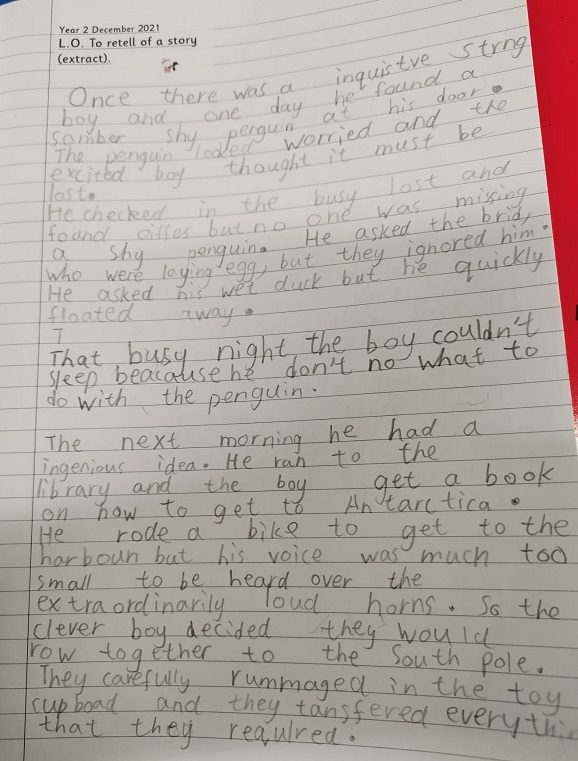 Year 2 December 2021
L.O. To retell of a story
(extract).
Once there was a inquistve strng
boy and one day he found a
somber shy penguin at his door.
The penguin looked worried and the
excited boy thought it must be
lost.
He checked in the busy lost and
found offises but no one was missing
a shy penguin. He asked the brid,
who were laying egg, but they ignored him.
He asked his wet duck but he quickly
floated away.
T
That busy night the boy couldn't
sleep beacause he don't no what to
do with the penguin.
The next morning he had a
ingenious idea. He ran to the
library and the boy get a book
on how to get to Antarctica.
He rode a bike to get to the
harboun but his voice was much too
small to be heard over the
extraordinarily loud horns. So the
clever boy decided they would
row together to the South pole.
They carefully rummaged in the toy
cupboad and they tansfered everythin
that they requlred.